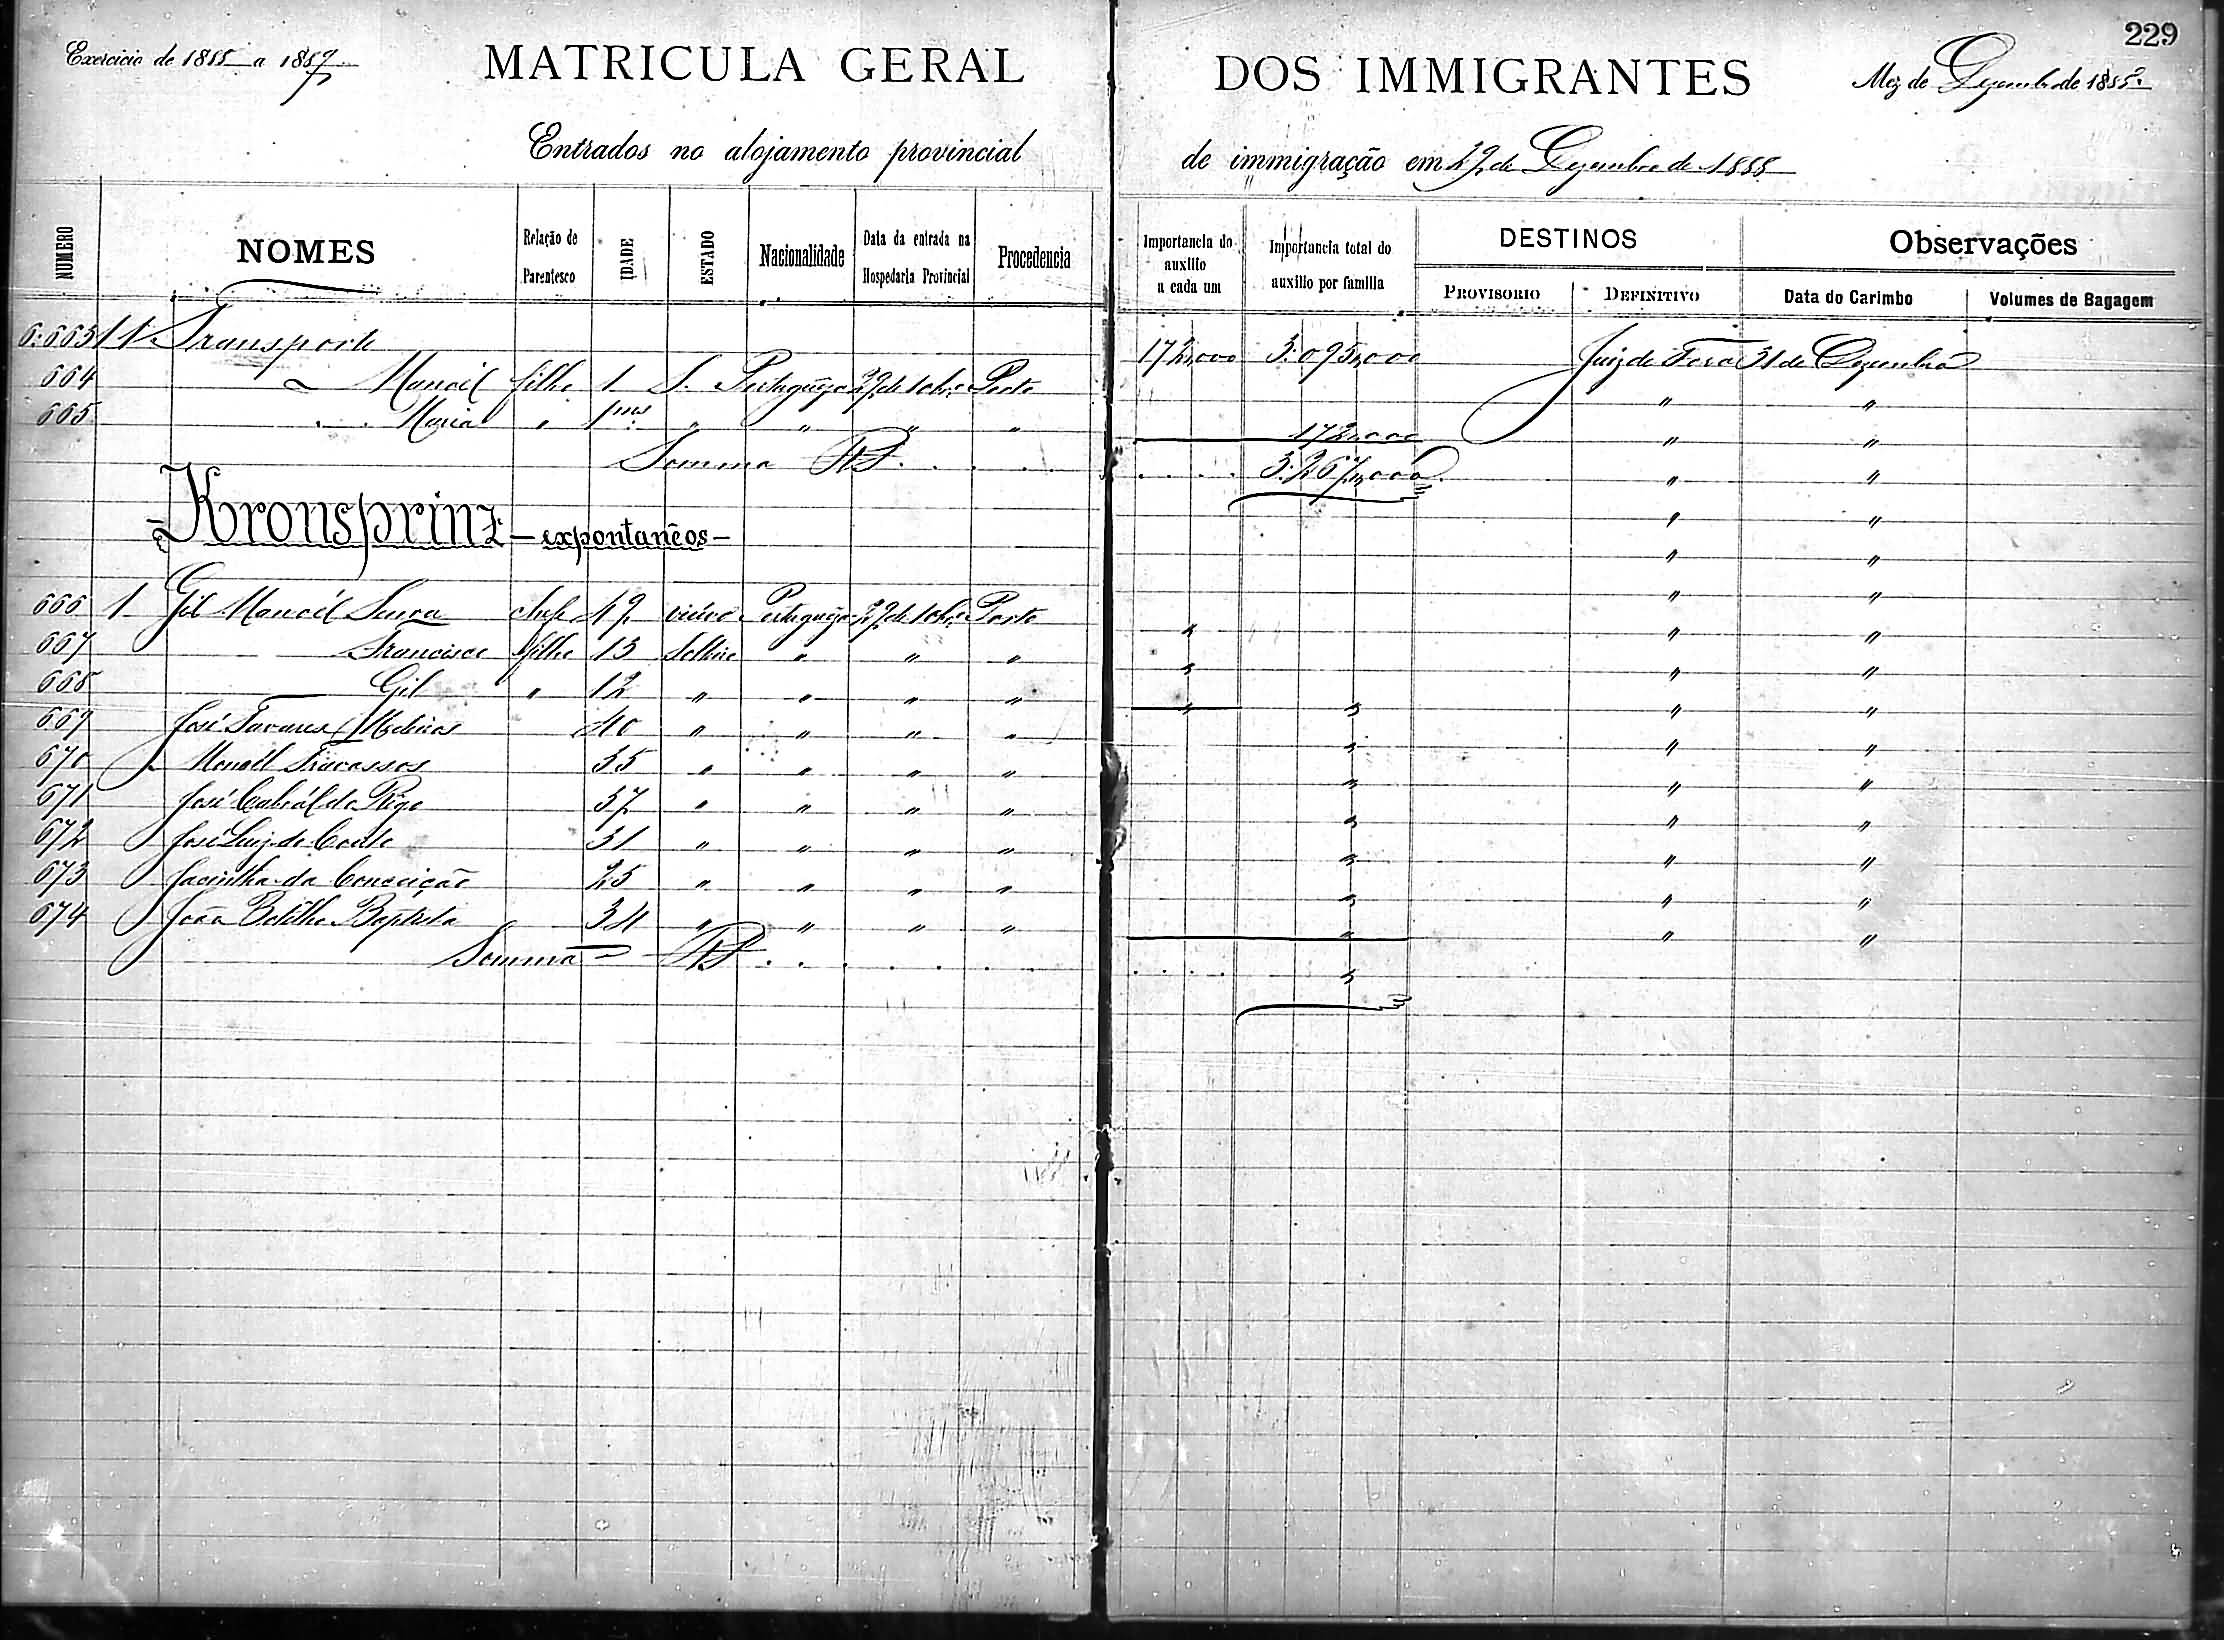 229
Exercicio de 1888 a 1889
MATRICULA GERAL DOS IMMIGRANTES
Mez de Dezembro de 1888
Entrados no alojamento provincial de immigração em 29 de Dezembro de 1888
NUMERO NOMES Relação de Parentesco IDADE ESTADO Nacionalidade Data da entrada na Hospedaria Provincial Procedencia Importancia do auxilio a cada um Importancia total do auxilio por familia DESTINOS PROVISORIO DEFINITIVO Observações Data do Carimbo Volumes de Bagagem
6:663 11 Transporte 172,000 3:095,000 Juiz de Fora 31 de Dezembro
664 " Manoél filho 1 S. Portugueza 29 de 10bro Porto " "
665 " Maria " 1 ms " " " " 172,000 " "
Somma RS. . . . . 3:267,000 " "
- Kronsprinz - expontanēos - " "
666 1 Gil Manoél chefe 49 viúvo Portugueza 29 de 10bro Porto " "
667 Francisco filho 13 Solteiro " " " " "
668 Gil " 12 " " " " " "
669 José Tavares Medeiros 40 " " " " " "
670 Manoél Travassos 35 " " " " " "
671 José Cabrál do Rêgo 37 " " " " " "
672 José Luiz do Couto 31 " " " " " "
673 Jacintha da Conceição 25 " " " " " "
674 João Botelho Baptista 34 " " " " " "
Somma RS . . . . .